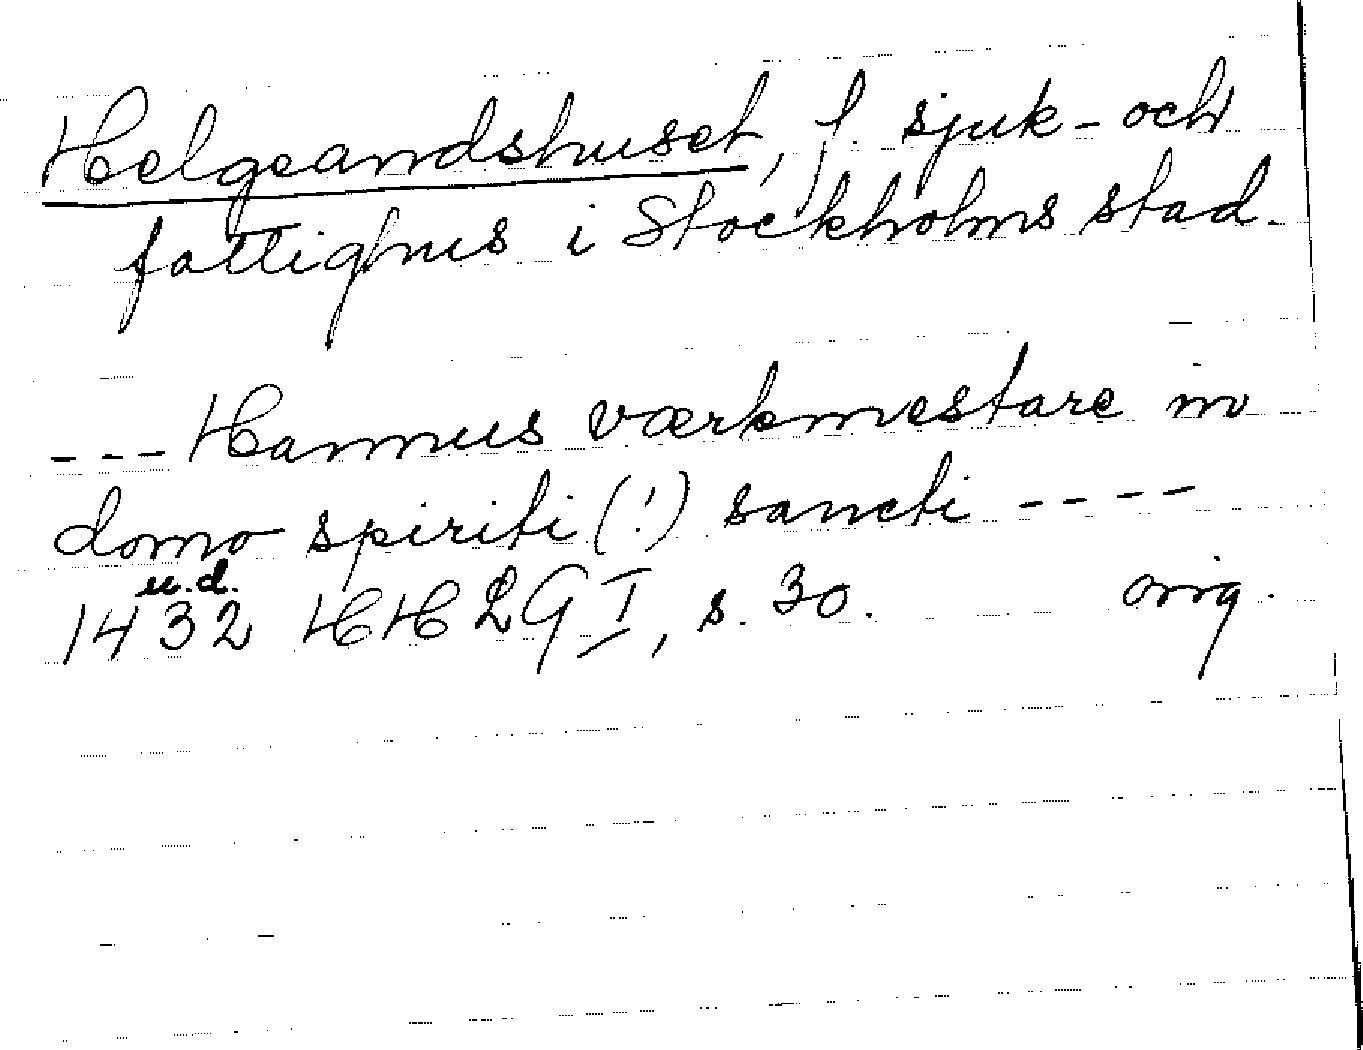 Helgeandshuset, f. sjuk- och
fattighus i Stockholms stad.
--- Hannus værkmestare in
domo spiriti (!) sancti ----
u.d.
1432 HHLG I, s. 30. orig.